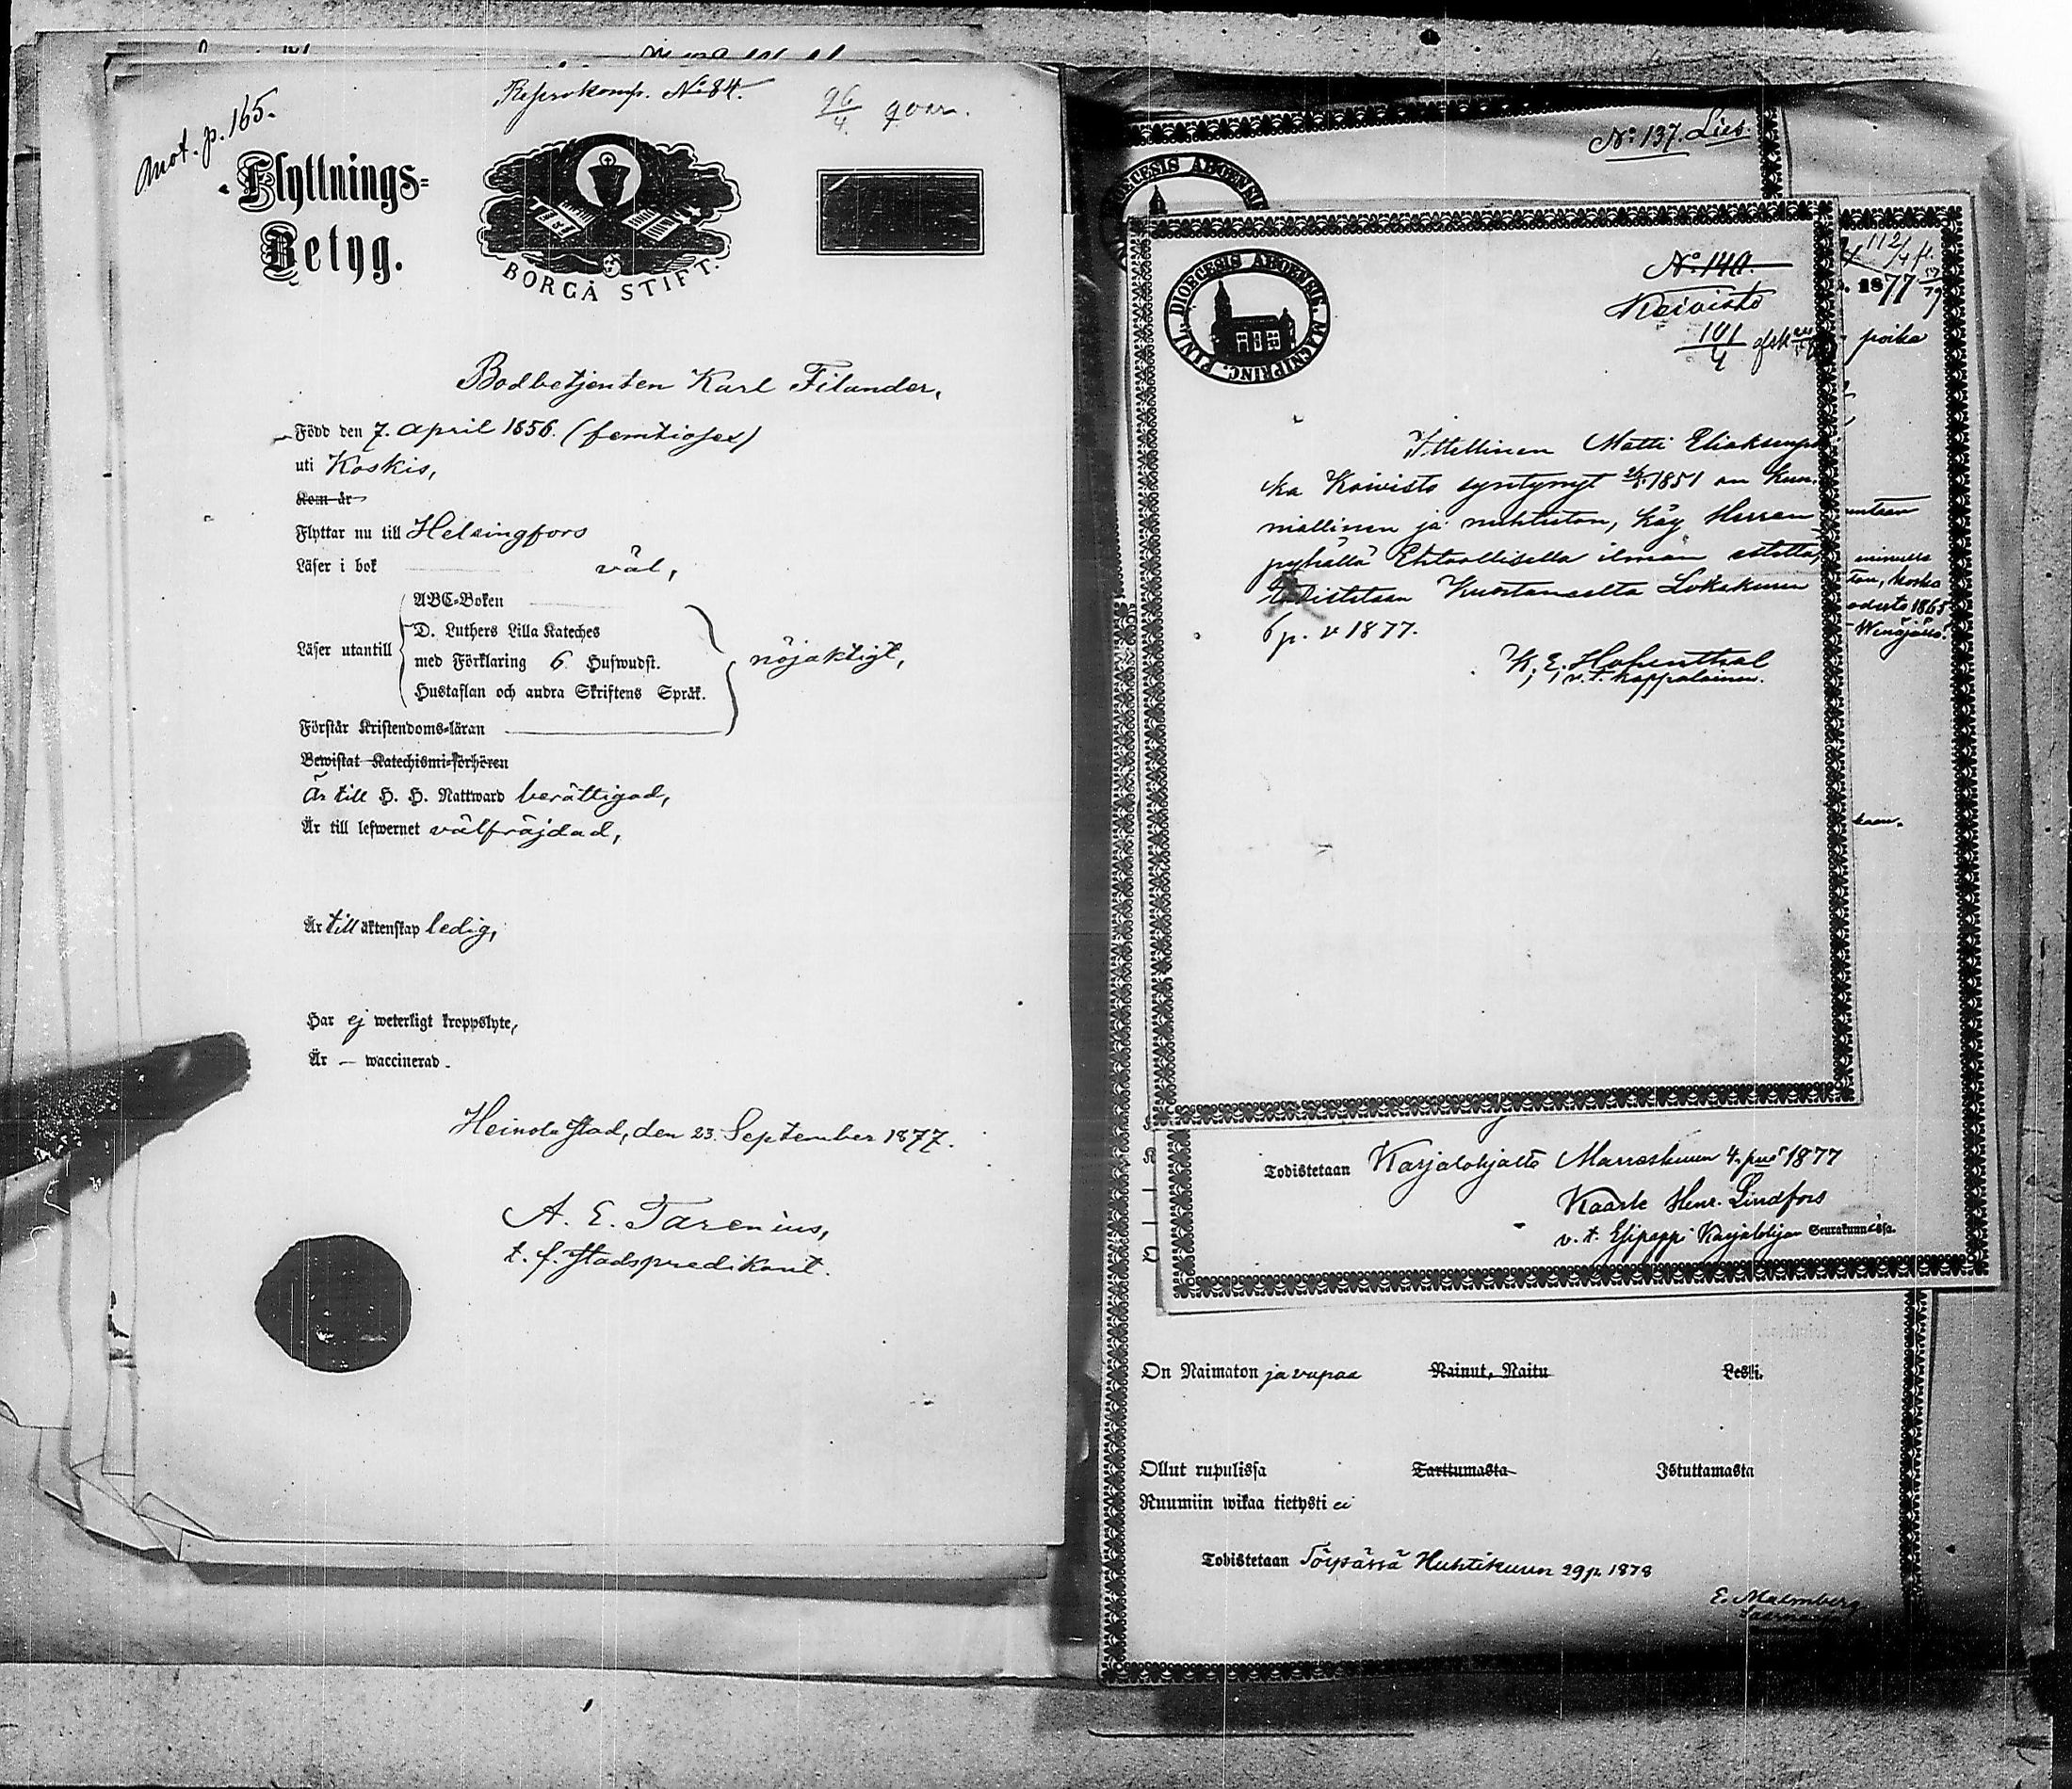 Anot. p. 165.
No 84.
96/4
Flyttnings-
Betyg.
BORGÅ STIFT.
Bodbetjenten Karl Filander,
Född den 7. April 1856. (femtiosex)
uti Koskis,
Kom år
Flyttar nu till Helsingfors
Läser i bok väl,
ABC-Boken
D. Luthers Lilla Kateches
Läser utantill
med Förklaring 6 Hufwudst.
nöjaktigt,
Hustaflan och andra Skriftens Språk.
Förstår Kristendoms-läran
Bewistat Katechismi-förhören
Är till H. H. Nattward berättigad,
Är till lefwernet välfräjdad,
Är till äktenskap ledig,
Har ej weterligt kroppslyte,
Är — waccinerad.
Heinola Stad, den 23. September 1877.
A. E. Tarenius,
t. f. Stadspredikant.
No 137.
DIOECESIS ABOENSIS
No 140.
Koivisto
101/4
DIOECESIS ABOENSIS. MAGNI PRINC. FINL.
Itsellinen Matti Eliaksenpoi
ka Koivisto syntynyt 1851 on kun-
niallinen ja nuhteeton, käy Herran
pyhällä Ehtoollisella ilman estettä,
todistetaan Kuortaneelta Lokakuun
6 p. v 1877.
K. E. Hohenthal
v. t. kappalainen.
112/4 fl.
1877
poika
minulla
koska
1865
Todistetaan Karjalohjalta Marraskuun 4. pnä 1877
Kaarle Henr. Lindfors
v. t. Esipappi Karjalohjan Seurakunnassa.
On Naimaton ja vapaa Nainut, Naitu Leski.
Ollut rupulissa Tarttumasta Istuttamasta
Ruumiin wikaa tietysti ei
Todistetaan Töysässä Huhtikuun 29 p. 1878
E. Malmberg